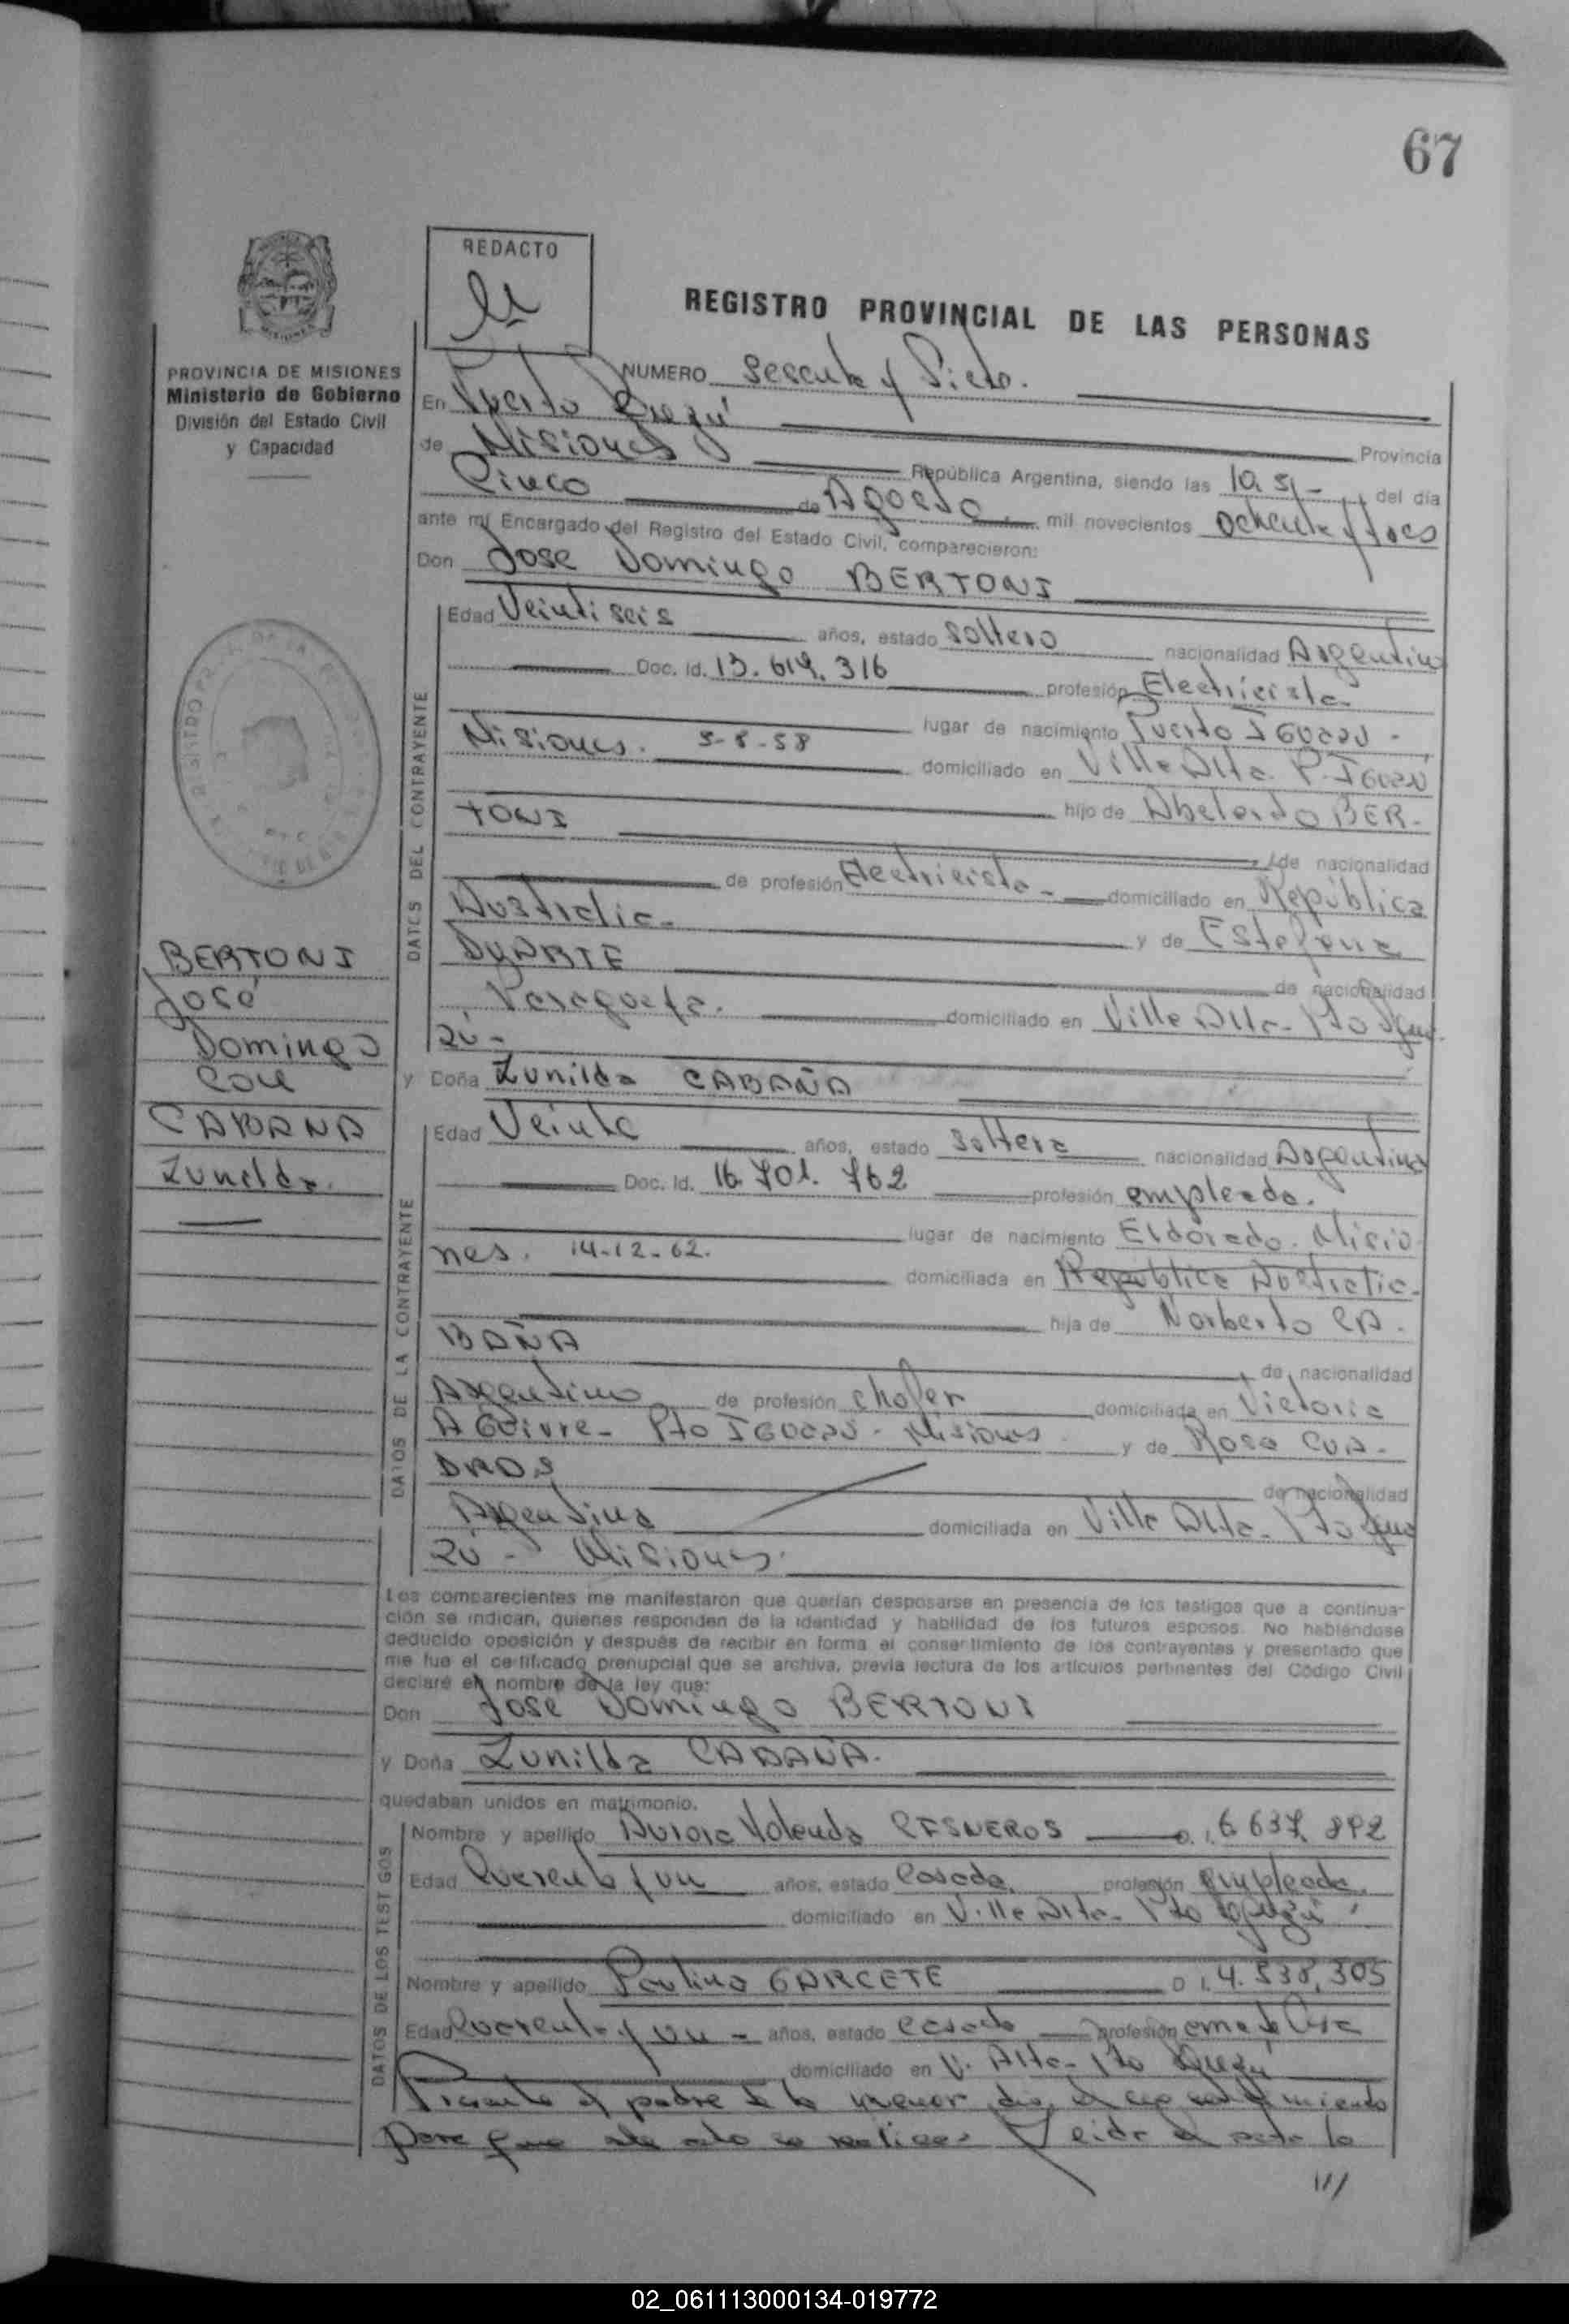 67
REDACTO
REGISTRO PROVINCIAL DE LAS PERSONAS
PROVINCIA DE MISIONES
Ministerio de Gobierno
División del Estado Civil
y Capacidad
NUMERO Sesenta y Siete.
En Puerto Iguazú
Provincia
de Misiones República Argentina, siendo las 10,51- del día
Cinco de Agosto mil novecientos ochenta y tres
ante mí Encargado del Registro del Estado Civil, comparecieron:
Don Jose Domingo BERTONI
DATOS DEL CONTRAYENTE
Edad Veintiseis años, estado Soltero nacionalidad Argentino
Doc. Id. 13.619.316 profesión Electricista
lugar de nacimiento Puerto IGUAZU -
Misiones. 5-8-58 domiciliado en Villa Alta P. IGUAZU
hijo de Abelardo BER-
TONI de nacionalidad
de profesión Electricista - domiciliado en República
Australia - y de Estefana
DUARTE de nacionalidad
Paraguaya. domiciliado en Villa Alta - Pto Igua
zú -
y Doña Zunilda CABAÑA
BERTONI
José
Domingo
con
CABAÑA
Zunilda.
DATOS DE LA CONTRAYENTE
Edad Veinte años, estado Soltera nacionalidad Argentina
Doc. Id. 16.701.762 profesión empleada.
lugar de nacimiento Eldorado. Misio
nes. 14-12-62. domiciliada en República Australia -
hija de Norberto CA-
BAÑA de nacionalidad
Argentino de profesión chofer domiciliada en Victoria
AGUIRRE - Pto IGUAZU - Misiones y de Rosa CUA-
DROS de nacionalidad
Argentina domiciliada en Villa Alta - Pto Igua
zú - Misiones.
Los comparecientes me manifestaron que querían desposarse en presencia de los testigos que a continua-
ción se indican, quienes responden de la identidad y habilidad de los futuros esposos. No habiéndose
deducido oposición y después de recibir en forma el consentimiento de los contrayentes y presentado que
me fue el certificado prenupcial que se archiva, previa lectura de los artículos pertinentes del Código Civil
declaré en nombre de la ley que:
Don José Domingo BERTONI
y Doña Zunilda CABAÑA.
quedaban unidos en matrimonio.
DATOS DE LOS TESTIGOS
Nombre y apellido Aurora Yolanda CISNEROS D.I. 6.637.892
Edad Cuarenta y un años, estado Casada, profesión empleada
domiciliado en Villa Alta - Pto Iguazú
Nombre y apellido Paulina GARCETE D.I. 4.538.305
Edad Cuarenta y un - años, estado casada profesión ama de Casa
domiciliado en V. Alta - Pto Iguazú
Presente el padre de la menor da el consentimiento
para que este acto se realice. Leida el acta la
///
02_061113000134-019772